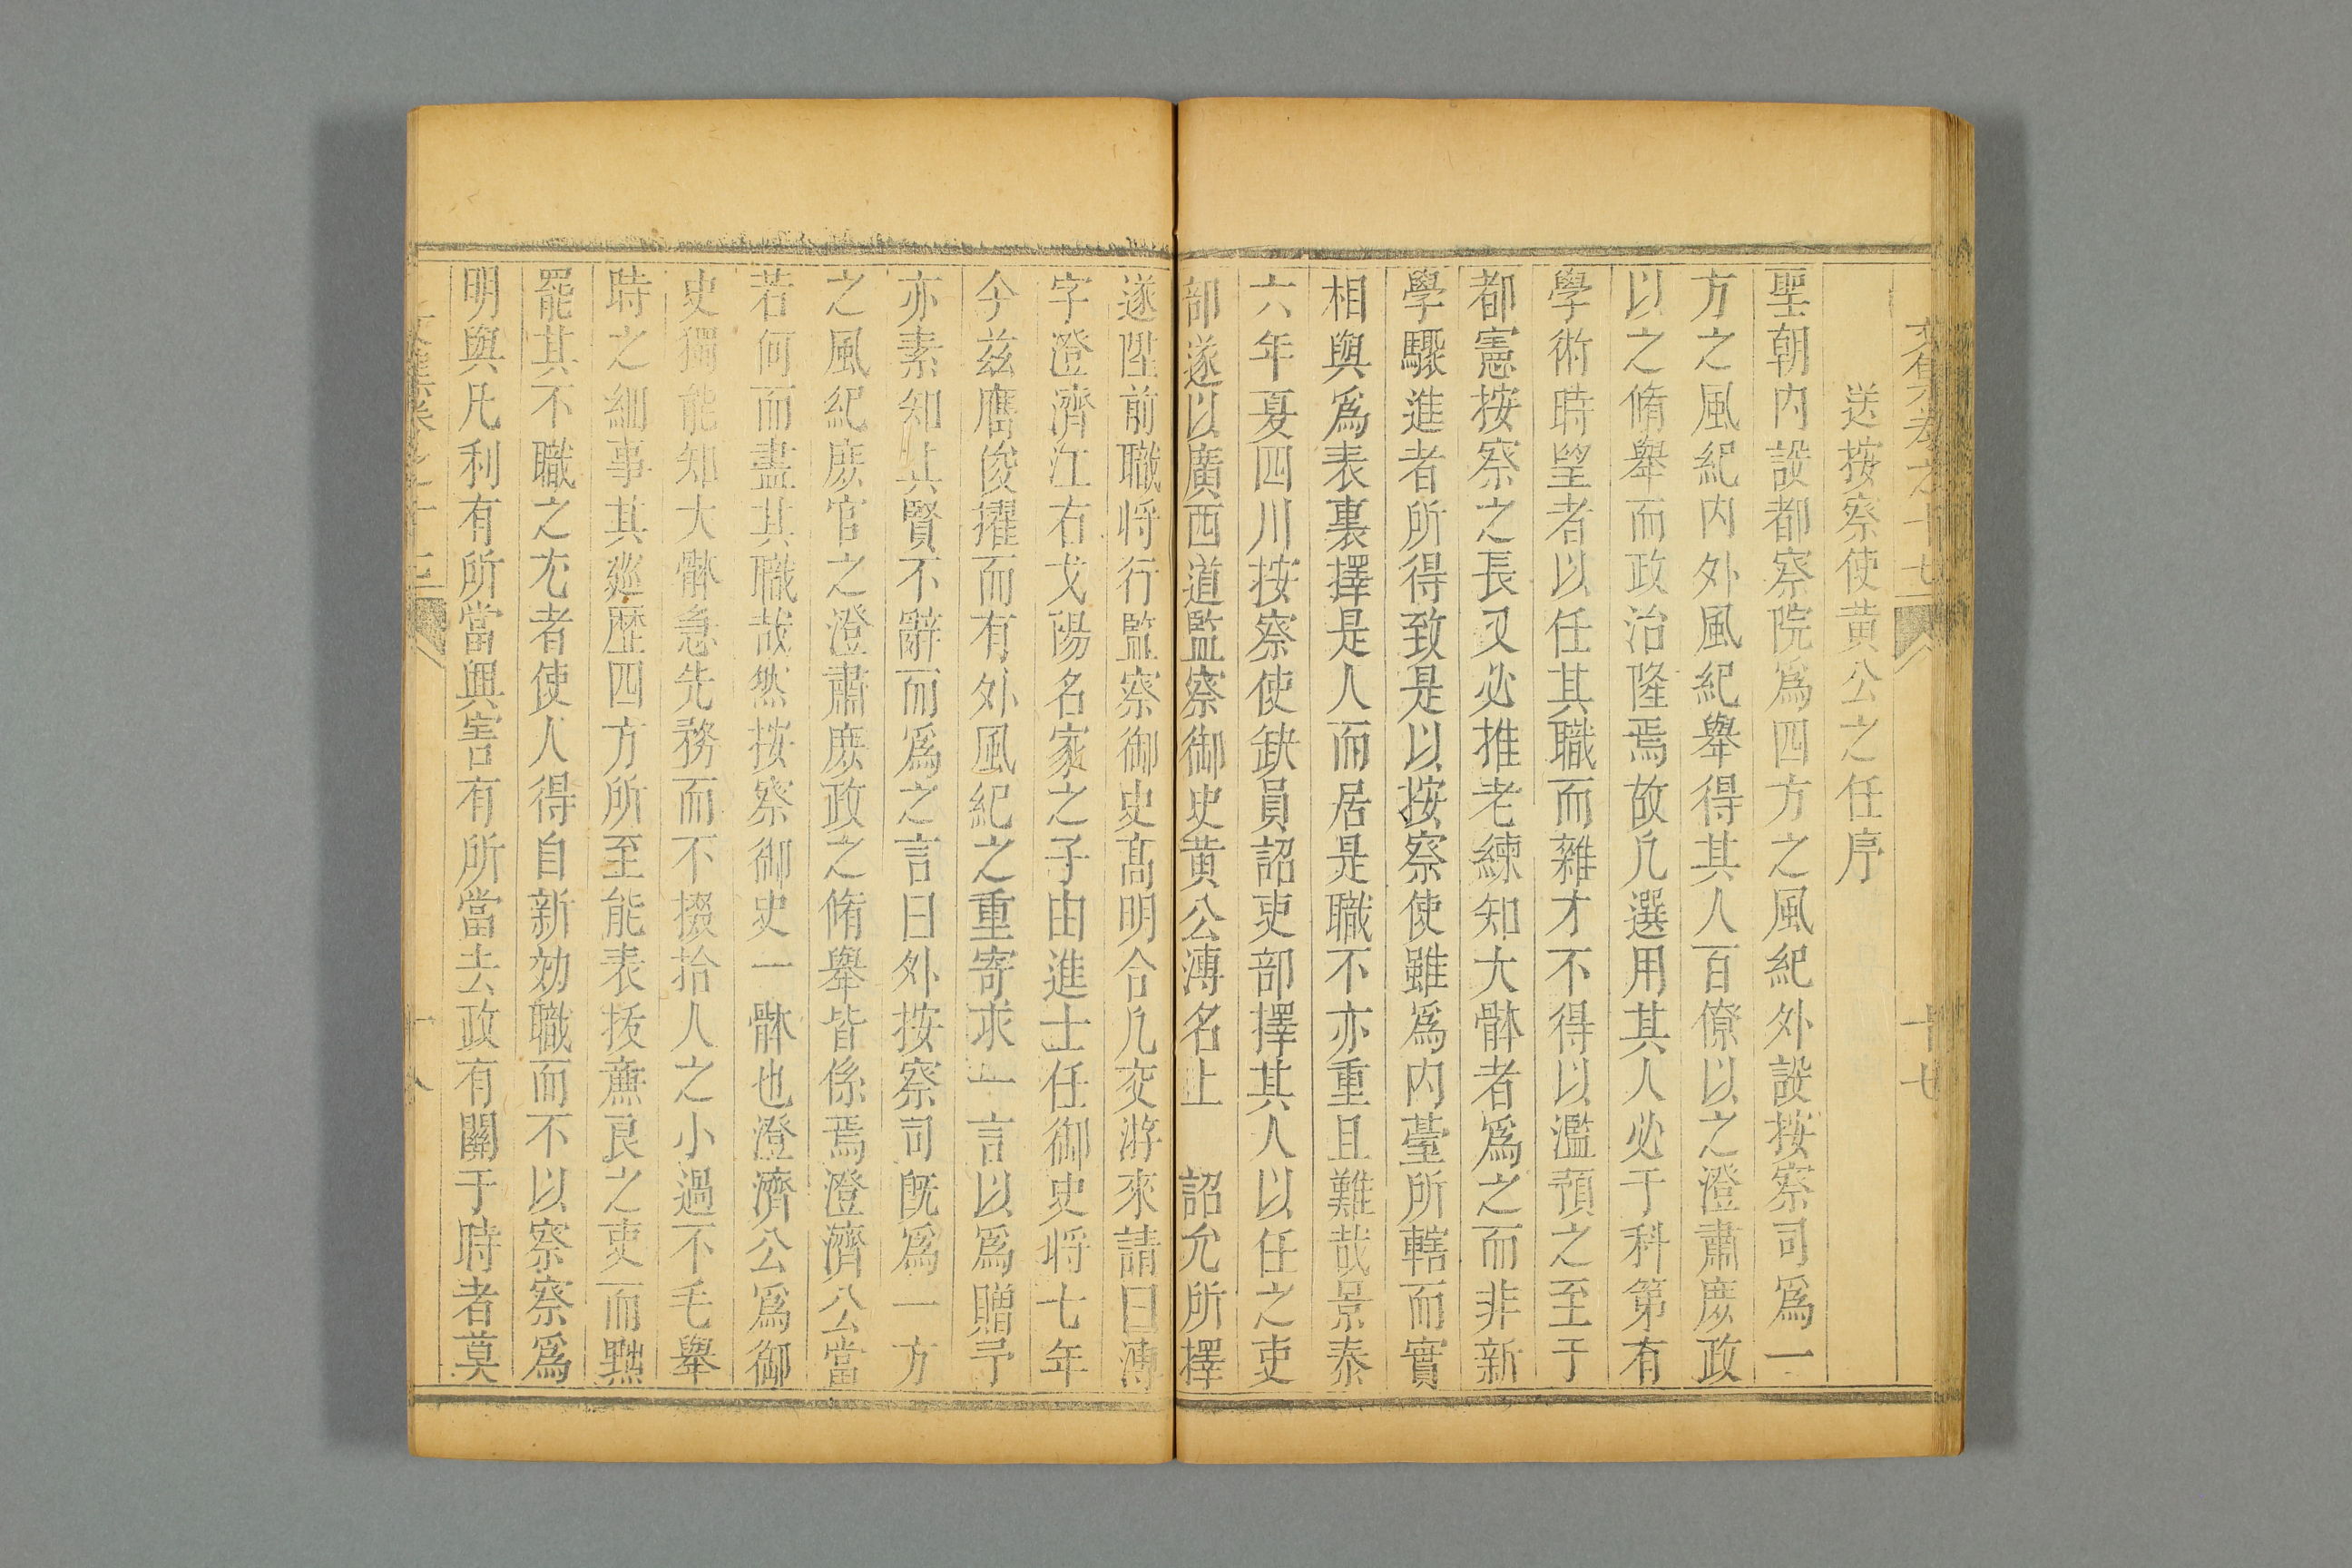 送按察使黄公之任序
聖朝内設都察院爲四方之風紀外設按察司爲一
方之風紀内外風紀舉得其人百僚以之澄肅庻政
以之脩舉而政治隆焉故凡選用其人必于科第有
學術時望者以任其職而雜才不得以濫預之至于
都憲按察之長又必推老練知大骵者爲之而非新
學驟進者所得致是以按察使雖爲内䑓所轄而實
相與爲表裏擇是人而居是職不亦重且難哉景泰
六年夏四川按察使缺員詔吏部擇其人以任之吏
部遂以廣西道監察御史黄公溥名上　詔允所擇
遂陞前職将行監察御史髙明合凡交游來請曰溥
字澄濟江右弋陽名家之子由進士任御史将七年
今兹膺俊擢而有外風紀之重寄求一言以爲贈予
亦素知其賢不辭而爲之言曰外按察司既爲一方
之風紀庻官之澄肅庻政之脩舉皆係焉澄濟公當
若何而盡其職哉然按察御史一骵也澄濟公爲御
史獨能知大骵急先務而不掇拾人之小過不毛舉
時之細事其廵歴四方所至能表拔㢘良之吏而黜
罷其不職之尤者使人得自新効職而不以察察爲
明與凡利有所當興害有所當去政有關于時者莫